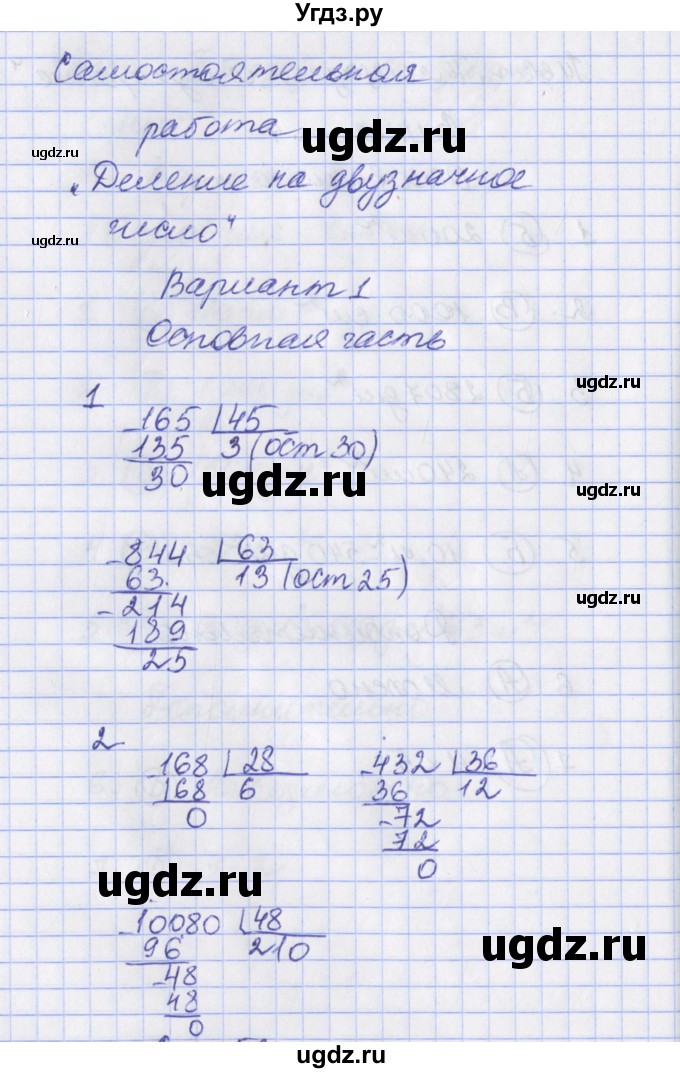 Угдз.ру
Самостоятельная
работа
ugdz.ru
ugdz.ru
ugdz.ru
„Деление на двузначное
число“
ugdz.ru
Вариант 1
Основная часть
ugdz.ru
1
165 45
135 3 (ост 30)
30
ugdz.ru
ugdz.ru
844 63
63 13 (ост 25)
214
189
25
ugdz.ru
2
168 28
168 6
0
432 36
36 12
72
72
0
ugdz.ru
10080 48
96 210
48
48
0
ugdz.ru
ugdz.ru